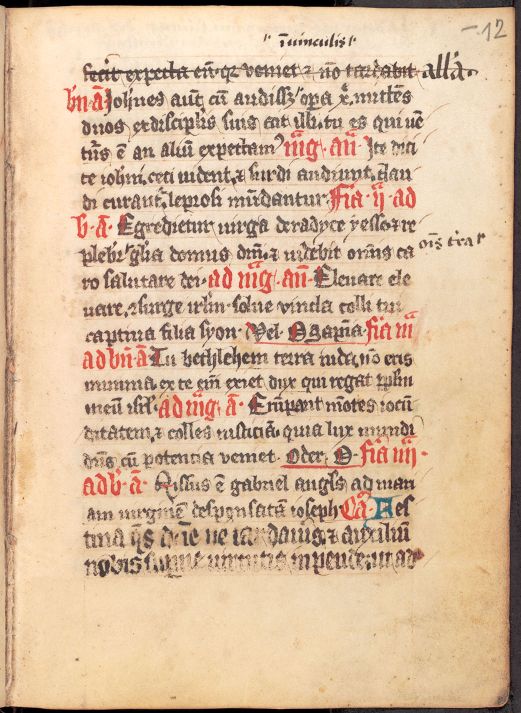 12
i vinculis
fecit expecta eū qr veniet ⁊ nō tardabit alla
bn̄ ā Johnes aut̄ cū audissz opa xp̄i mittens
duos ex discipĺis suis ait illi tu es qui vē
tur̄ es an aliū expectam⁹ mḡ añ Ite dici
te iohn̄i ceci vident ⁊ surdi audiunt clau
di curant̄ leprosi mūdantur Fīa ij ad
b ā Egredietur virga de radyce yesse ⁊ re
plebit̄ glīa domus dn̄i ⁊ videbit omīs ca
oīs t̄ra
ro salutare dei ad mḡ añ Elevare ele
vare ⁊surge irlm̄ solue vincla colli tui
captiva filia syon Vel O sapīa fīa iij
ad bn̄ ā Tu bethlehem terra iuda nō eris
minima ex te eīm exiet dux qui regat pp̄lm
meū isrl̄ ad mḡ ā Erūpant mōtes iocū
ditatem ⁊ colles iusticiā quia lux mundi
dn̄s cū potentia veniet Oder O fīa iiij
ad b ā Missus ē gabriel angls̄ ad mari
am virginē desponsatā ioseph Cā Fes
tina q̄s dn̄e ne tardaūis ⁊ auxiliū
nobis sup̄ne virtutis impende ut ad